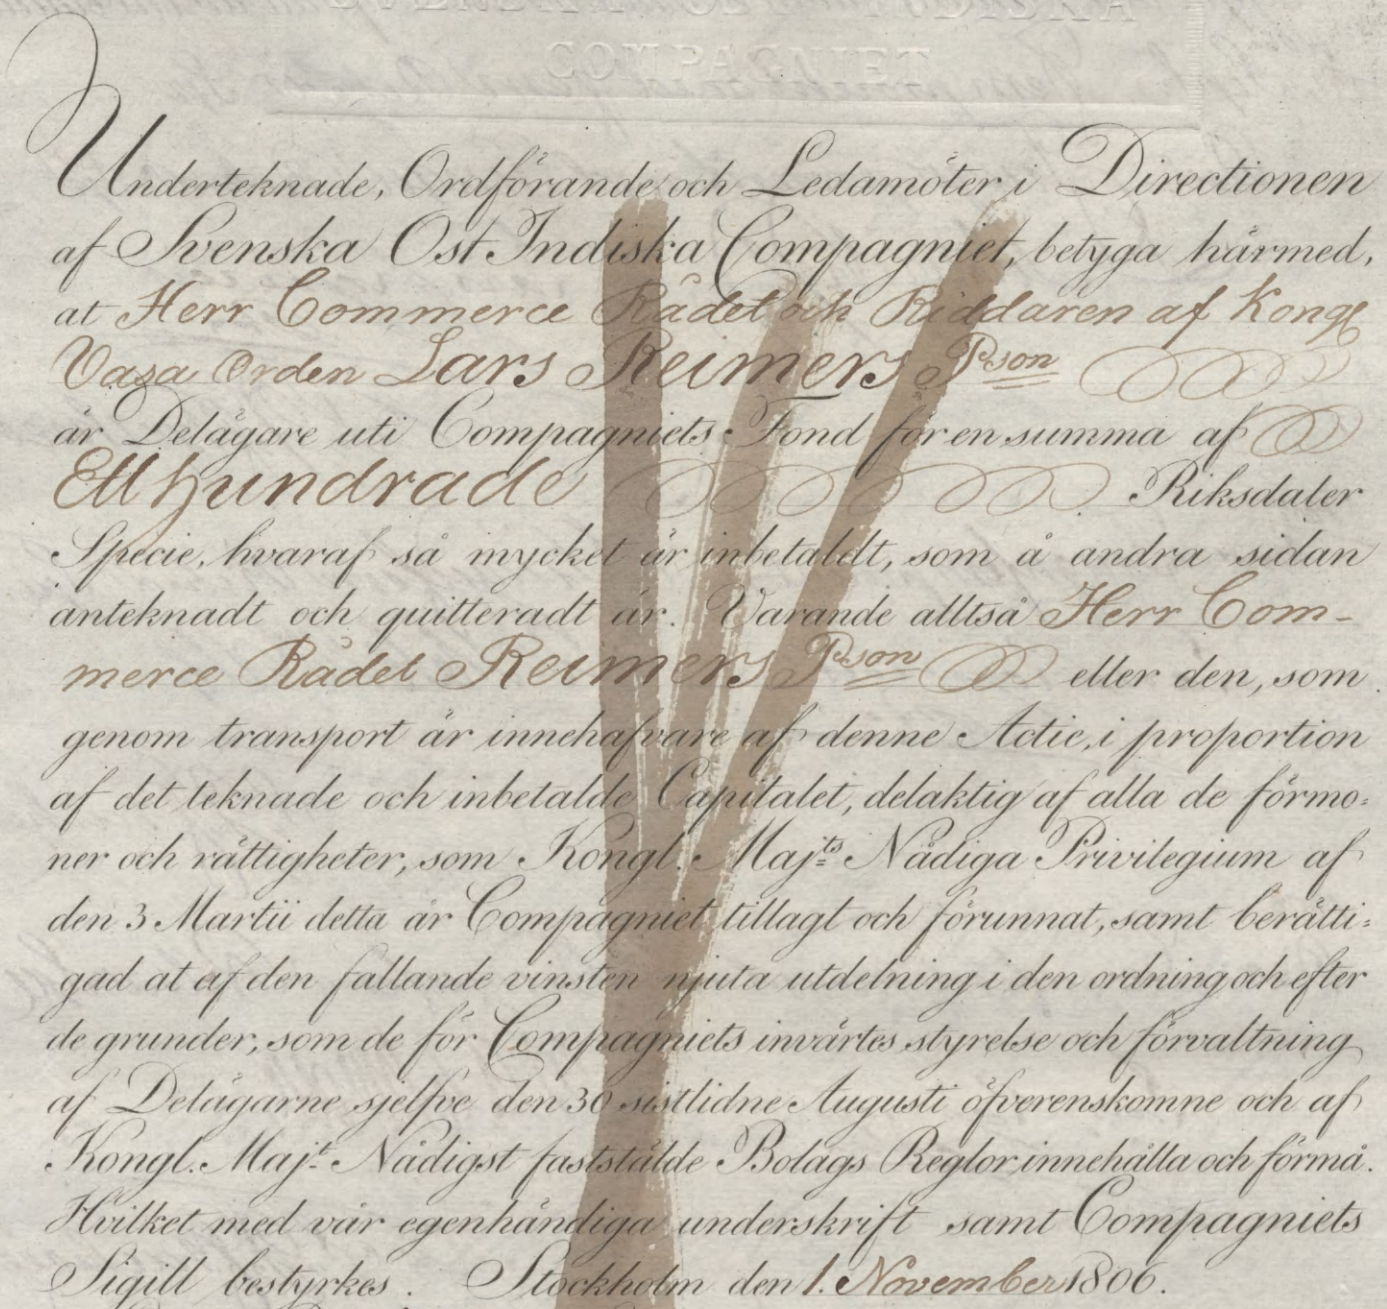 SVENSKA OST INDISKA
COMPAGNIET
Underteknade, Ordförande och Ledamöter i Directionen
af Svenska Ost Indiska Compagniet, betyga härmed,
at Herr Commerce Rådet och Riddaren af Kongl
Vasa Orden Lars Reimers Pson
är Delägare uti Compagniets Fond för en summa af
Ett hundrade Riksdaler
Specie, hvaraf så mycket är inbetaldt, som å andra sidan
anteknadt och quitteradt är. Varande alltså Herr Com-
merce Rådet Reimers Pson eller den, som
genom transport är innehafvare af denne Actie, i proportion
af det teknade och inbetalde Capitalet, delaktig af alla de förmo=
ner och rättigheter, som Kongl. Maj:ts Nådiga Privilegium af
den 3 Martii detta år Compagniet tillagt och förunnat, samt berätti=
gad at af den fallande vinsten njuta utdelning i den ordning och efter
de grunder, som de för Compagniets invärtes styrelse och förvaltning
af Delägarne sjelfve den 30 sistlidne Augusti öfverenskomne och af
Kongl. Maj:t Nådigst faststälde Bolags Reglor innehålla och förmå.
Hvilket med vår egenhändiga underskrift samt Compagniets
Sigill bestyrkes. Stockholm den 1. November 1806.